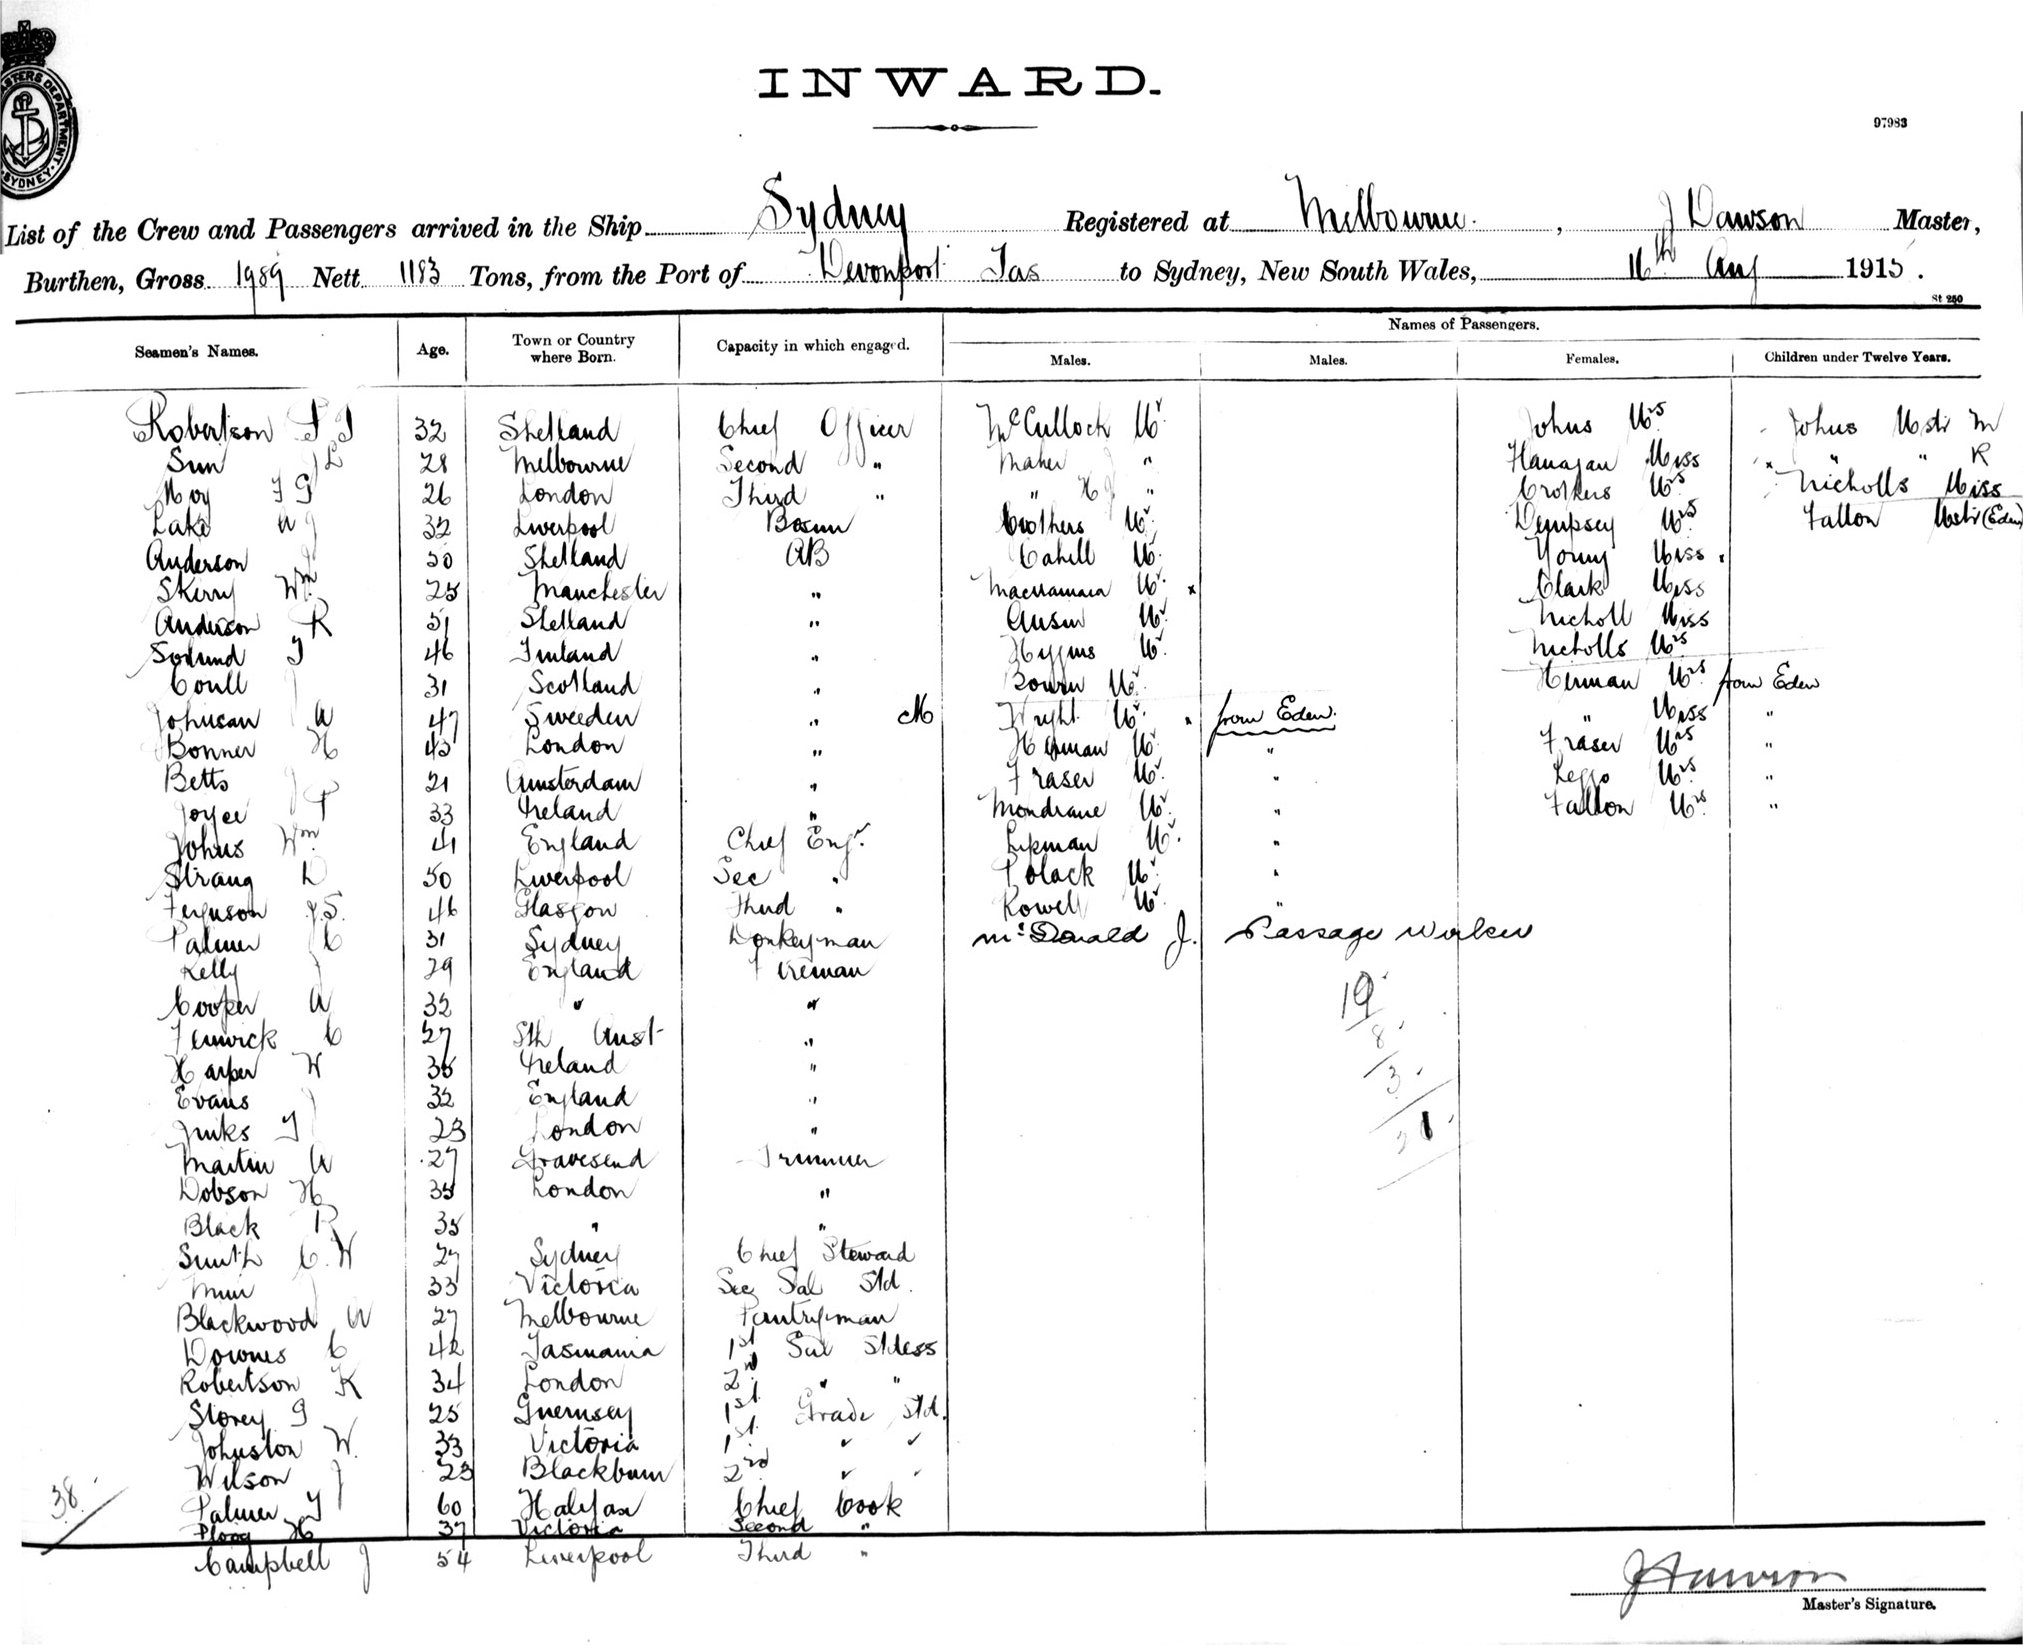 INWARD.
97983
MASTERS DEPARTMENT. SYDNEY.
List of the Crew and Passengers arrived in the Ship Sydney Registered at Melbourne. , J Dawson Master,
Burthen, Gross 1989 Nett 1183 Tons, from the Port of Devonport Tas to Sydney, New South Wales, 16th Aug 1915.
St 250
Seamen's Names. Age. Town or Country where Born. Capacity in which engaged. Names of Passengers.
Males. Males. Females. Children under Twelve Years.
Robertson 32 Shetland Chief Officer McCulloch Mr Johns Mrs Johns Mstr M
28 Melbourne Second " Maher " Flanagan Miss " " R
26 London Third " " " Crothers Mrs Nicholls Miss
Lake 32 Liverpool Bosun Crothers Mr Dempsey Mrs Fallon Mstr (Eden)
Anderson J 50 Shetland AB Cahill Mr Young Miss
Skerry Wm 25 Manchester " Macnamara Mr x Clark Miss
Anderson R 51 Shetland " Mr Nicholl Miss
46 Finland " Higgins Mr Nicholls Mrs
Coull J 31 Scotland " Bowen Mr Herman Mrs from Eden
Johnson A 47 Sweeden " Wright Mr from Eden. " Miss "
Bonner H 45 London " Herman Mr " Fraser Mrs "
Betts J 21 Amsterdam " Fraser Mr " Leggo Mrs "
Joyce P 33 Ireland " Mondrane Mr " Fallon Mrs "
Johns Wm 41 England Chief Engr. Lipman Mr "
Strang D 50 Liverpool Sec " Polack Mr "
Ferguson J.S. 46 Glasgow Third " Rowell Mr "
Palmer C 31 Sydney Donkeyman McDonald J. Passage Worker
Kelly J 29 England Fireman
Cooper A 32 " " 19
Fenwick C 27 Sth Aust " 8
Harper W 35 Ireland " 3
Evans J 32 England "
Jenks 23 London "
Martin A 27 Gravesend Trimmer
Dobson H 35 London "
Black R 35 " "
Smith C.W 27 Sydney Chief Steward
Muir J 33 Victoria Sec Sal Std.
Blackwood A 27 Melbourne Pantryman
Downes C 42 Tasmania 1st Sal Stdess
Robertson K 34 London 2nd " "
Storey G 25 Guernsey 1st Grade Std.
Johnston W. 33 Victoria 1st " "
Wilson J 23 Blackburn 2nd " "
38. Palmer 60 Halifax Chief Cook
Ploog H 37 Victoria Second "
Campbell J 54 Liverpool Third "
J Dawson
Master's Signature.